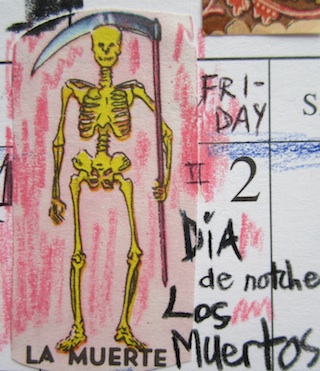 FRI-
DAY
S
II 2
DíA
de notche
Los
Muertos
LA MUERTE